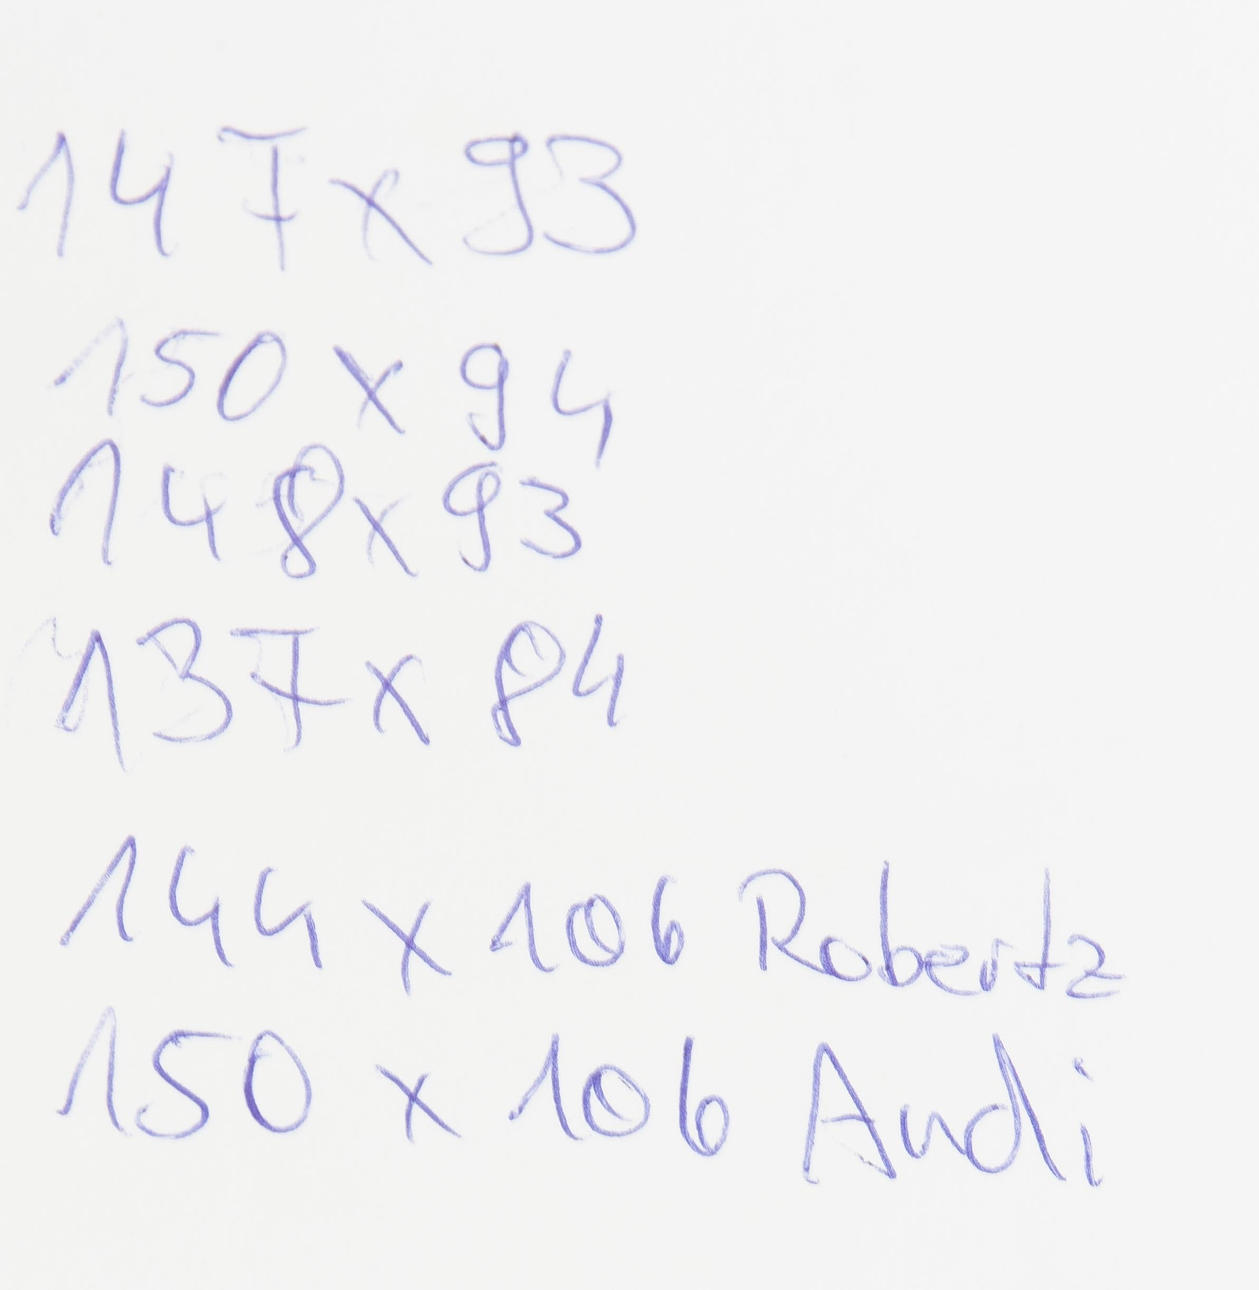 147x93
150x94
148x93
137x84
144x106 Robertz
150x106 Audi